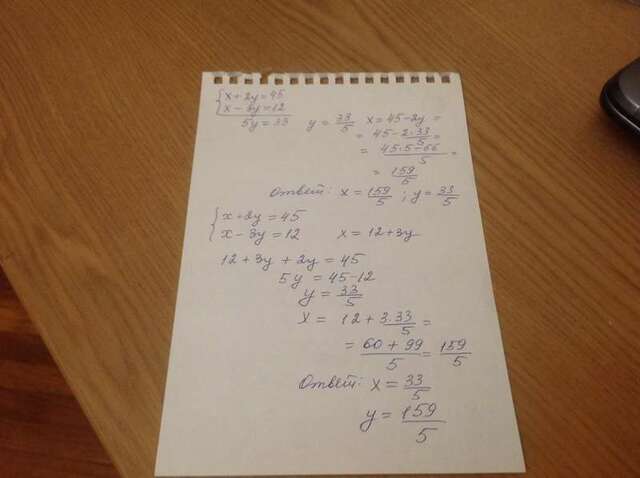 {x+2y=45
x-3y=12
5y=33 y=33/5 x=45-2y=
=45-2·33/5=
=45·5-66/5=
=159/5
Ответ: x=159/5; y=33/5
{x+2y=45
x-3y=12 x=12+3y
12+3y+2y=45
5y=45-12
y=33/5
x=12+3·33/5=
=60+99/5=159/5
Ответ: x=33/5
y=159/5